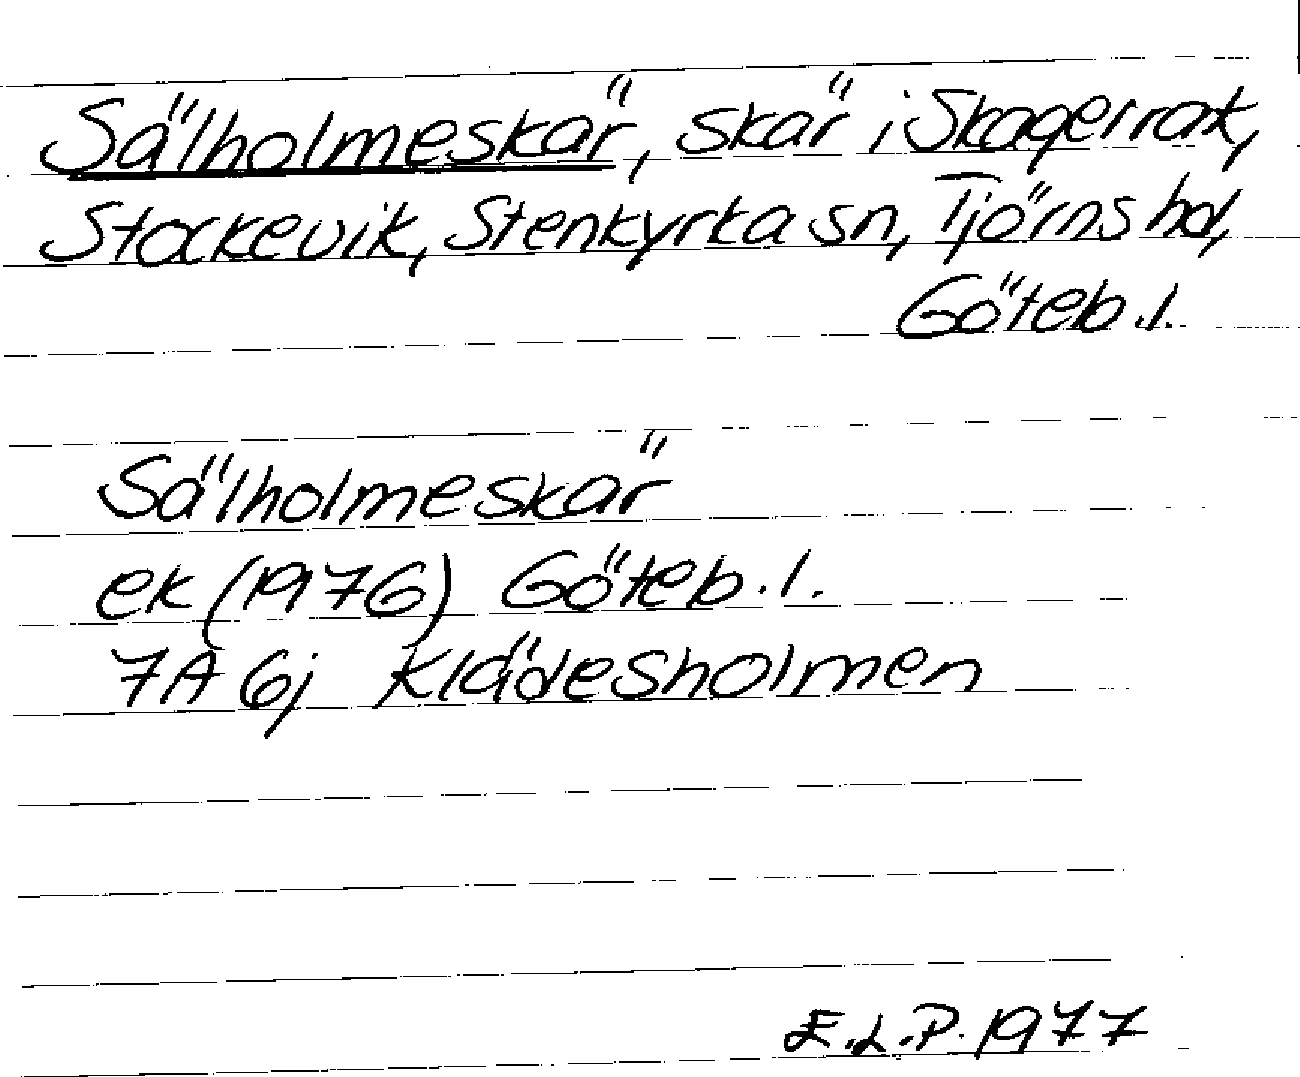 Sälholmeskär, skär i Skagerrak,
Stockevik, Stenkyrka sn, Tjörns hd,
Göteb.l.
Sälholmeskär
ek (1976) Göteb.l.
7A 6j Klädesholmen
E.L.P. 1977